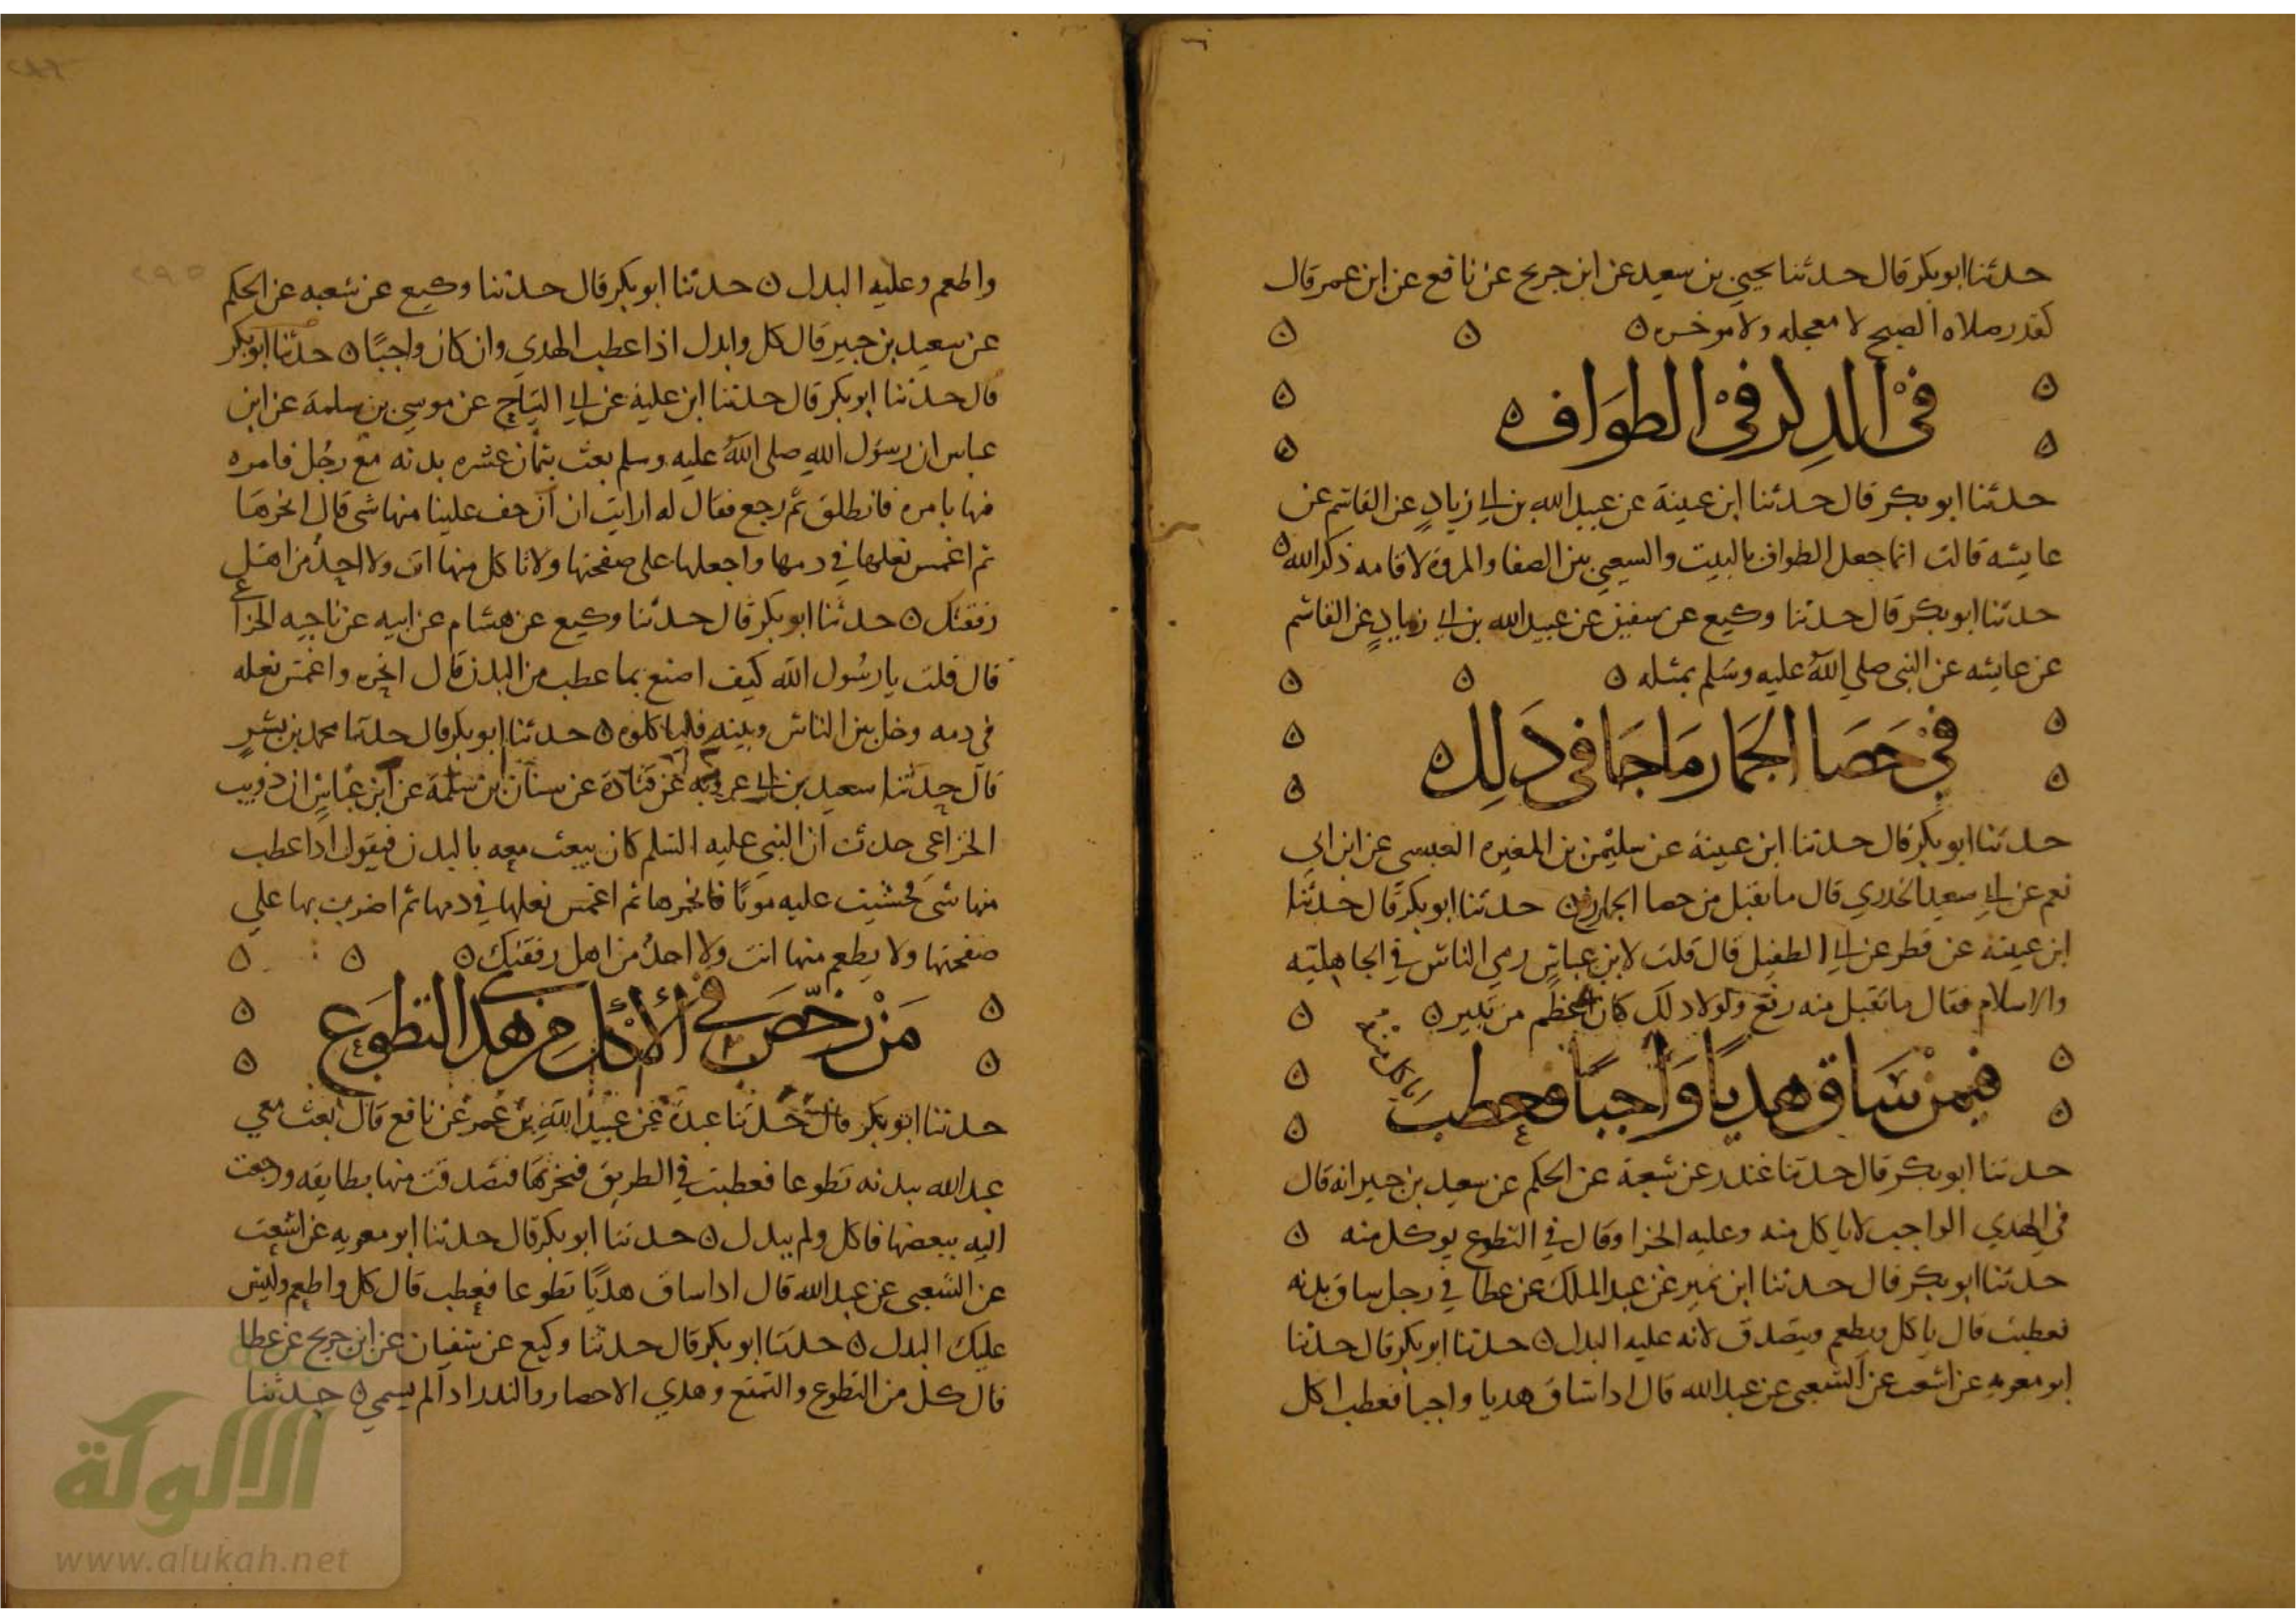 حدثنا ابو بكر قال حدثنا يحيى بن سعيد عن ابن جريج عن نافع عن ابن عمر قال
كقدر صلاه الصبح لا معجله ولا موخره ه
في الذكر في الطواف ه
حدثنا ابو بكر قال حدثنا ابن عيينة عن عبيد الله بن ابي زيادٍ عن القاسم عن
عايشه قالت انما جعل الطواف بالبيت والسعي بين الصفا والمروة لاقامه ذكر الله ه
حدثنا ابو بكر قال حدثنا وكيع عن سفين عن عبيد الله بن ابي زيادٍ عن القاسم
عن عايشه عن النبي صلي الله عليه وسلم بمثله ه
في حَصَا الجمار مَا جَا في ذَلِك ه
حدثنا ابو بكر قال حدثنا ابن عيينة عن سليمن بن المغيره العبسي عن ابن ابي
نعم عن ابي سعيد الخدري قال ما تقبل من حصا الجمار رفع ه حدثنا ابو بكر قال حدثنا
ابن عيينه عن فطر عن ابي الطفيل قال قلت لابن عباس رمي الناس في الجاهليه
والاسلام فقال ما تقبل منه رفع ولولا ذلك كان اعظم من ثبير ه
فيمن سَاق هديا وَاجبًا فعطب
اياكل منه
حدثنا ابو بكر قال حدثنا غندر عن شعبة عن الحكم عن سعيد بن جبير انه قال
في الهدي الواجب لا ياكل منه وعليه الجزا وقال في التطوع يوكل منه ه
حدثنا ابو بكر قال حدثنا ابن نمير عن عبد الملك عن عطا في رجل ساق بدنه
فعطبت قال ياكل ويطعم ويتصدق لانه عليه البدل ه حدثنا ابو بكر قال حدثنا
ابو معويه عن اشعث عن الشعبي عن عبد الله قال اذا ساق هديا واجبا فعطب اكل
واطعم وعليه البدل ه حدثنا ابو بكر قال حدثنا وكيع عن شعبه عن الحكم
عن سعيد بن جبير قال كل وابدل اذا عطب الهدي وان كان واجبًا ه حدثنا ابو بكر
قال حدثنا ابو بكر قال حدثنا ابن علية عن ابي التياح عن موسي بن سلمة عن ابن
عباس ان رسول الله صلى الله عليه وسلم بعث بثمان عشره بدنه مع رجُل فامره
فيها بامره فانطلق ثم رجع فقال له ارايت ان ازحف علينا منها شي قال انحرها
ثم اغمس نعلها في دمها واجعلها على صفحتها ولا تاكل منها انت ولا احدٌ من اهل
رفقتك ه حدثنا ابو بكر قال حدثنا وكيع عن هشام عن ابيه عن ناجيه الخزاعي
قال قلت يا رسُول الله كيف اصنع بما عطب من البدن قال انحره واغمس نعله
في دمه وخل بين الناس وبينه فلياكلوه ه حدثنا ابو بكر قال حدثنا محمد بن بشرٍ
قال حدثنا سعيد بن ابي عروبه عن قتادة عن سنان بن سلمة عن ابن عباس ان ذويب
الخزاعي حدث ان النبي عليه السلم كان يبعث معه بالبدن فيقول اذا عطب
منها شي فخشيت عليه موتًا فانحرها ثم اغمس نعلها في دمها ثم اضرب بها علي
صفحتها ولا يطعم منها انت ولا احدٌ من اهل رفقتك ه
مَنْ رخّصَ في الأكل من هدي التطوَع
حدثنا ابو بكر قال حدثنا عبدة عن عبيد الله بن عُمر عن نافع قال بعث معي
عبد الله ببدنه تطوعا فعطبت في الطريق فنحرتها فتصدقت منها بطايفه ورجعت
اليه ببعضها فاكل ولم يبدل ه حدثنا ابو بكر قال حدثنا ابو معويه عن اشعث
عن الشعبي عن عبد الله قال اذا ساق هديًا تطوعا فعطب قال كل واطعم وليس
عليك البدل ه حدثنا ابو بكر قال حدثنا وكيع عن سفيان عن ابن جريج عن عطا
قال كل من التطوع والتمتع وهدي الاحصار والنذر اذا لم يسمي ه حدثنا
٢٩٥
الالوكة
www.alukah.net